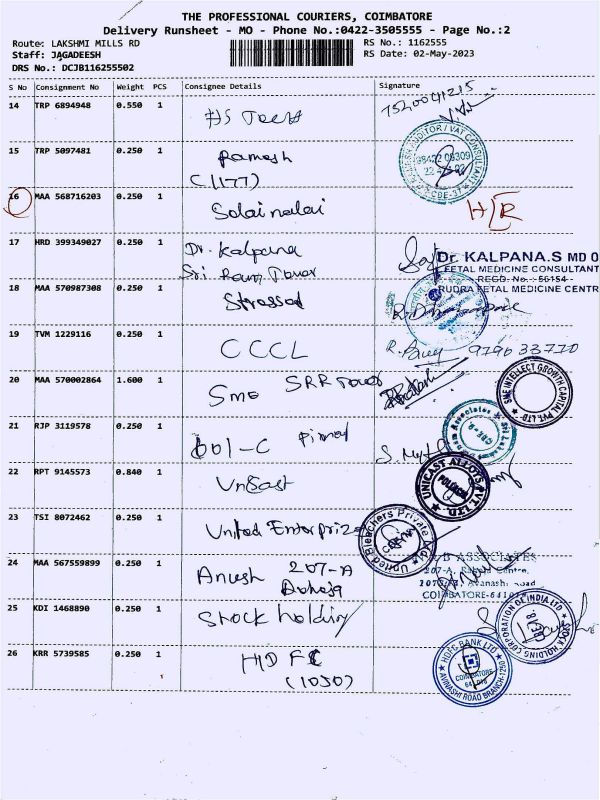 THE PROFESSIONAL COURIERS, COIMBATORE
Delivery Runsheet - MO - Phone No.:0422-3505555 - Page No.:2
Route: LAKSHMI MILLS RD
RS No.: 1162555
Staff: JAGADEESH
RS Date: 02-May-2023
DRS No.: DCJB116255502
S No Consignment No Weight PCS Consignee Details Signature
14 TRP 6894948 0.550 1
15 TRP 5097481 0.250 1 Ramesh
C(177)
AUDITOR / VAT CONSULTANT
CBE-37
16 MAA 568716203 0.250 1 Solainalai
17 HRD 399349027 0.250 1 Dr. Kalpana
Sri Ram Tower
Dr. KALPANA.S MD O
FETAL MEDICINE CONSULTANT
REGD. No. 56154
RUDRA FETAL MEDICINE CENTR
18 MAA 570987308 0.250 1
19 TVM 1229116 0.250 1 CCCL
20 MAA 570002864 1.600 1 SME SRR Tower
SME INTELLECT GROWTH CAPITAL PVT LTD
21 RJP 3119578 0.250 1
22 RPT 9145573 0.840 1 Unicast
UNICAST ALLOYS PVT LTD
23 TSI 8072462 0.250 1 United Enterprize
United Bleachers Private Ltd
24 MAA 567559899 0.250 1 Anush 207-A
ASSOCIATES
Avanashi Road
25 KDI 1468890 0.250 1 Stock holding
STOCK HOLDING CORPORATION OF INDIA LTD
26 KRR 5739585 0.250 1 HDFC
(1030)
HDFC BANK LTD
COIMBATORE
641018
AVINASHI ROAD BRANCH